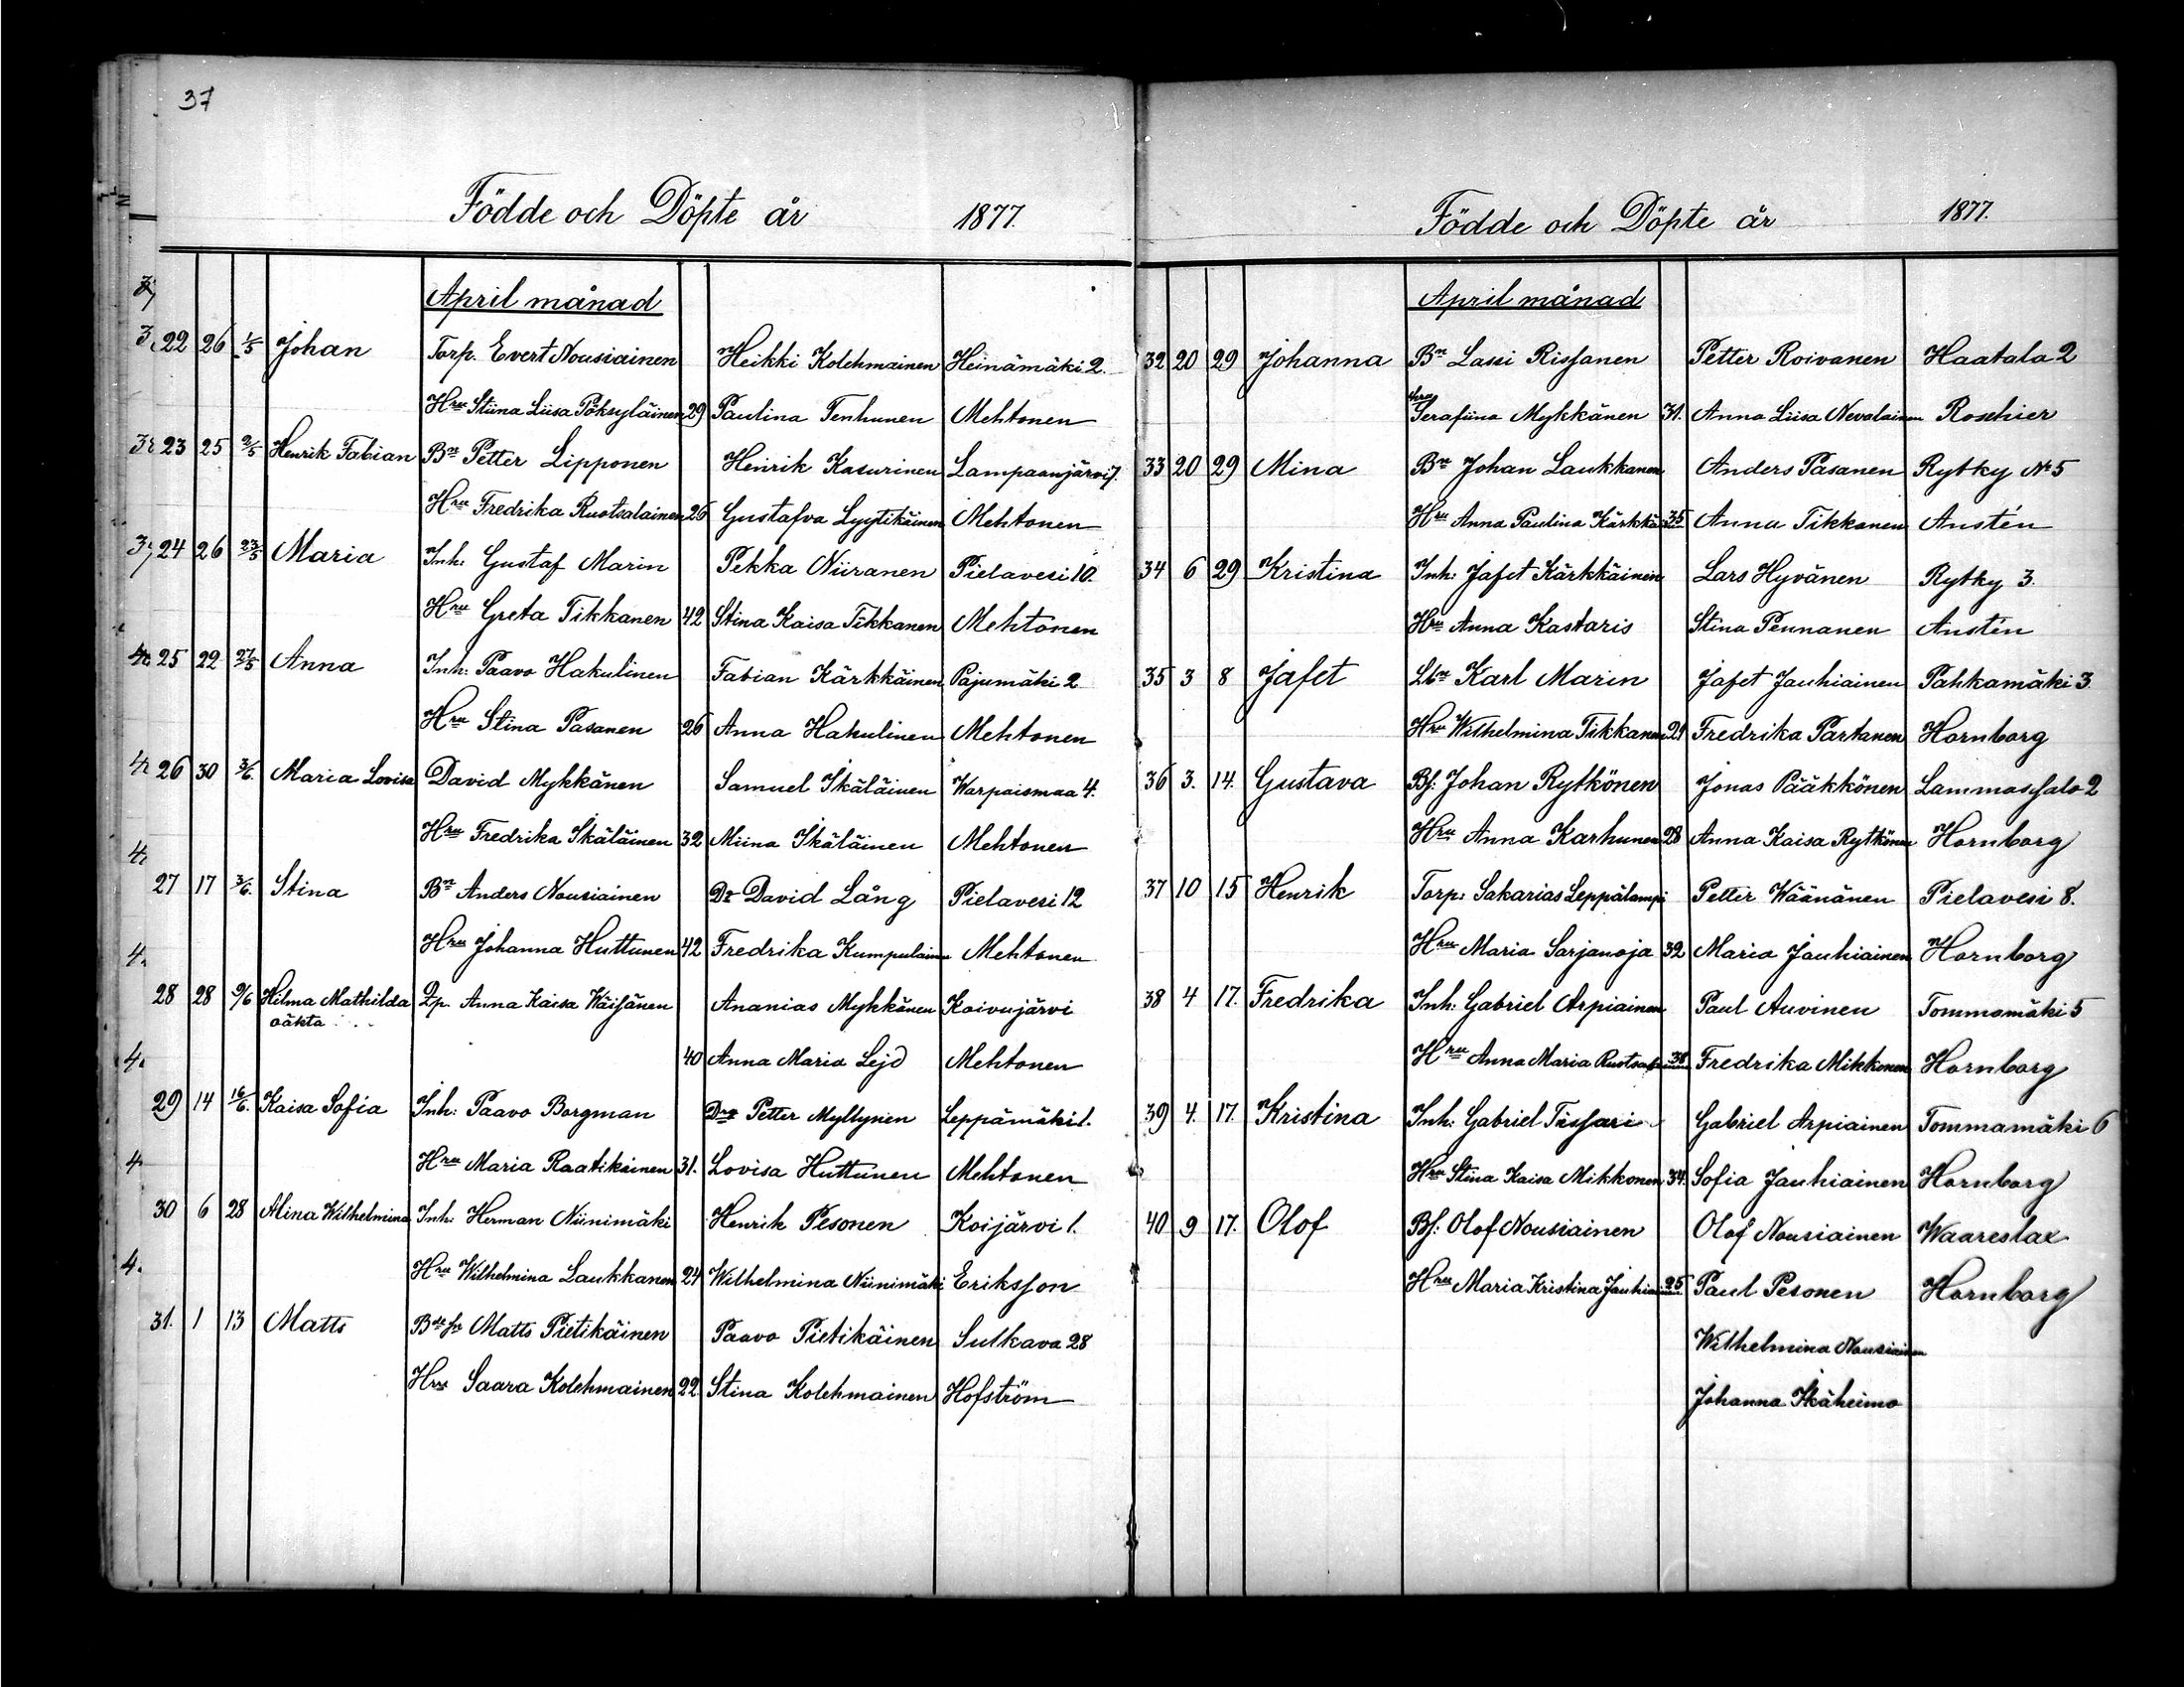 37
Födde och Döpte år 1877.
April månad
22 26 1/5 Johan Torp. Evert Nousiainen Heikki Kolehmainen Heinämäki 2.
Hru Stiina Liisa Pöksyläinen 29 Paulina Tenhunen Mehtonen
23 25 2/5 Henrik Fabian Bn Petter Lipponen Henrik Kasurinen Lampaanjärvi 7.
Hru Fredrika Ruotsalainen 26 Gustafva Lyytikäinen Mehtonen
24 26 23/5 Maria Inh: Gustaf Marin Pekka Niiranen Pielavesi 10.
Hru Greta Tikkanen 42 Stina Kaisa Tikkanen Mehtonen
25 22 27/5 Anna Inh: Paavo Hakulinen Fabian Kärkkäinen Pajumäki 2
Hru Stina Pasanen 26 Anna Hakulinen Mehtonen
26 30 3/6. Maria Lovisa David Mykkänen Samuel Ikäläinen Warpaismaa 4.
Hru Fredrika Ikäläinen 32 Miina Ikäläinen Mehtonen
27 17 3/6. Stina Bn Anders Nousiainen Dr David Lång Pielavesi 12
Hru Johanna Huttunen 42 Fredrika Kumpulainen Mehtonen
28 28 9/6 Hilma Mathilda Dp. Anna Kaisa Wäisänen Ananias Mykkänen Koivujärvi
oäkta
40 Anna Maria Lejd Mehtonen
29 14 16/6. Kaisa Sofia Inh: Paavo Borgman Drg Petter Myllynen Leppämäki 1.
Hru Maria Raatikainen 31. Lovisa Huttunen Mehtonen
30 6 28 Alina Wilhelmina Inh: Herman Niinimäki Henrik Pesonen Koijärvi 1.
Hru Wilhelmina Laukkanen 24 Wilhelmina Niinimäki Eriksson
31. 1 13 Matts Matts Pietikäinen Paavo Pietikäinen Sulkava 28
Hru Saara Kolehmainen 22 Stina Kolehmainen Hofström
Födde och Döpte år 1877.
April månad
32 20 29 Johanna Bn Lassi Rissanen Petter Roivanen Haatala 2
Hru Serafiina Mykkänen 31. Anna Liisa Nevalainen Roschier
33 20 29 Mina Bn Johan Laukkanen Anders Pasanen Rytky No 5
Hru Anna Paulina Kärkkäinen 35 Anna Tikkanen Austén
34 6 29 Kristina Inh: Jafet Kärkkäinen Lars Hyvänen Rytky 3.
Hru Anna Kastaris Stina Pennanen Austén
35 3 8 Jafet Lbn Karl Marin Jafet Jauhiainen Pahkamäki 3
Hru Wilhelmina Tikkanen 21 Fredrika Partanen Hornborg
36 3. 14. Gustava Bf: Johan Rytkönen Jonas Pääkkönen Lammassalo 2
Hru Anna Karhunen 28 Anna Kaisa Rytkönen Hornborg
37 10 15 Henrik Torp: Sakarias Leppälampi Petter Wäänänen Pielavesi 8.
Hru Maria Sarjanoja 32 Maria Jauhiainen Hornborg
38 4 17. Fredrika Inh: Gabriel Arpiainen Paul Auvinen Tommamäki 5
Hru Anna Maria Ruotsalainen 38 Fredrika Mikkonen Hornborg
39 4. 17. Kristina Inh: Gabriel Tissari Gabriel Arpiainen Tommamäki 6
Hru Stina Kaisa Mikkonen 34. Sofia Jauhiainen Hornborg
40 9 17. Olof Bf: Olof Nousiainen Olof Nousiainen Waareslax
Hru Maria Kristina Jauhiainen 25 Paul Pesonen Hornborg
Wilhelmina Nousiainen
Johanna Ikäheimo